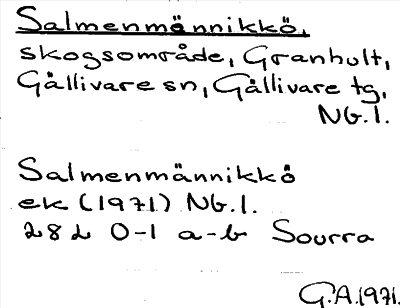 Salmenmännikkö,
skogsområde, Granhult,
Gällivare sn, Gällivare tg,
Nb.l.
Salmenmännikkö
ek (1971) Nb.l.
28L 0-1 a-b Sourra
G.A.1971.